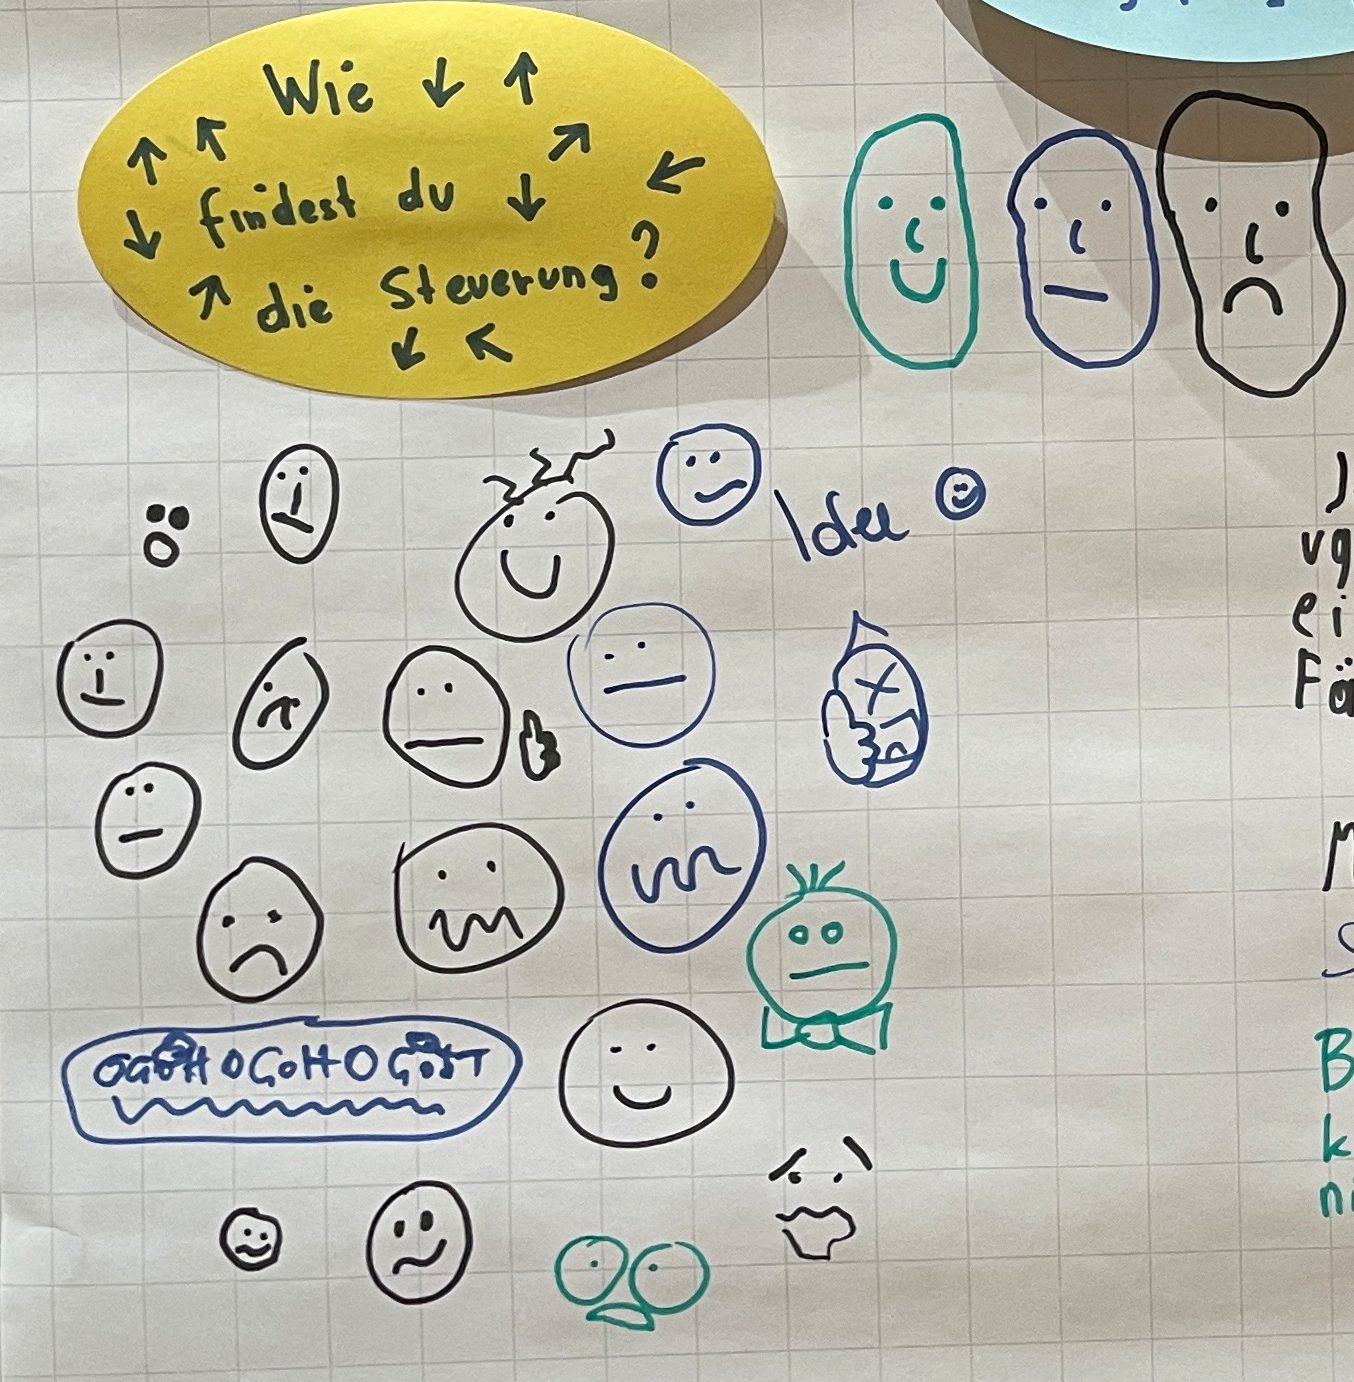 Wie ↓ ↑
↑ ↖ ↗ ←
↓ findest du ↓
↗ die Steuerung?
↙ ↖
Idee
vg
ei
B
k
ni